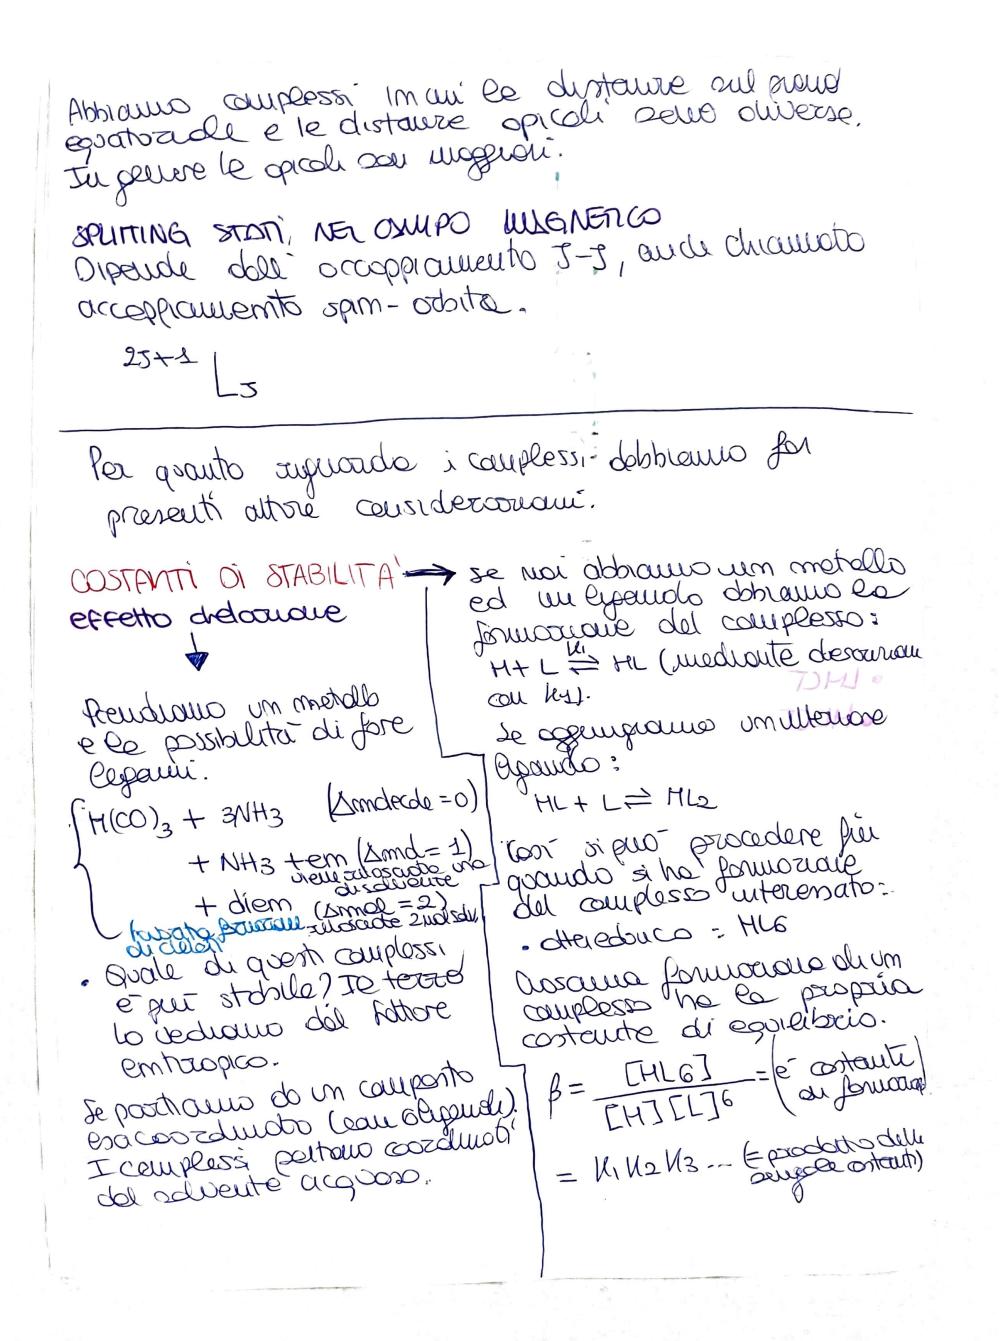 Abbiamo complessi in cui le distanze sul piano
equatoriale e le distanze apicali sono diverse.
In genere le apicali son maggiori.
SPLITTING STATI, NEL CAMPO MAGNETICO
Dipende dall' accoppiamento J-J, anche chiamato
accoppiamento spin-orbita.
2J+1 L J
Per quanto riguarda i complessi dobbiamo far
presenti altre considerazioni.
COSTANTI DI STABILITA' →
effetto chelazione
↓
Prendiamo un metallo
e le possibilità di fare
legami.
M(CO)3 + 3NH3 (Δmolecole = 0)
+ NH3 + en (Δmol = 1)
viene rilasciata una
di solvente
+ dien (Δmol = 2)
rilasciate 2 mol solv
di chelati
• Quale di questi complessi
è più stabile? Il terzo
lo vediamo dal fattore
entropico.
Se partiamo da un composto
esacoordinato (con 6 ligandi).
I complessi saltano coordinati
dal solvente acquoso.
se noi abbiamo un metallo
ed un legando abbiamo la
formazione del complesso:
M + L ⇌ ML (mediante
K1
con K1).
Se aggiungiamo un ulteriore
ligando:
ML + L ⇌ ML2
Così si può procedere fin
quando si ha formazione
del complesso interessato:
• ottaedrico = ML6
Ciascuna formazione di un
complesso ha la propria
costante di equilibrio.
β = [ML6] / [M][L]^6 = (è costante
di formazione)
= K1 K2 K3 ... (è prodotto delle
singole costanti)